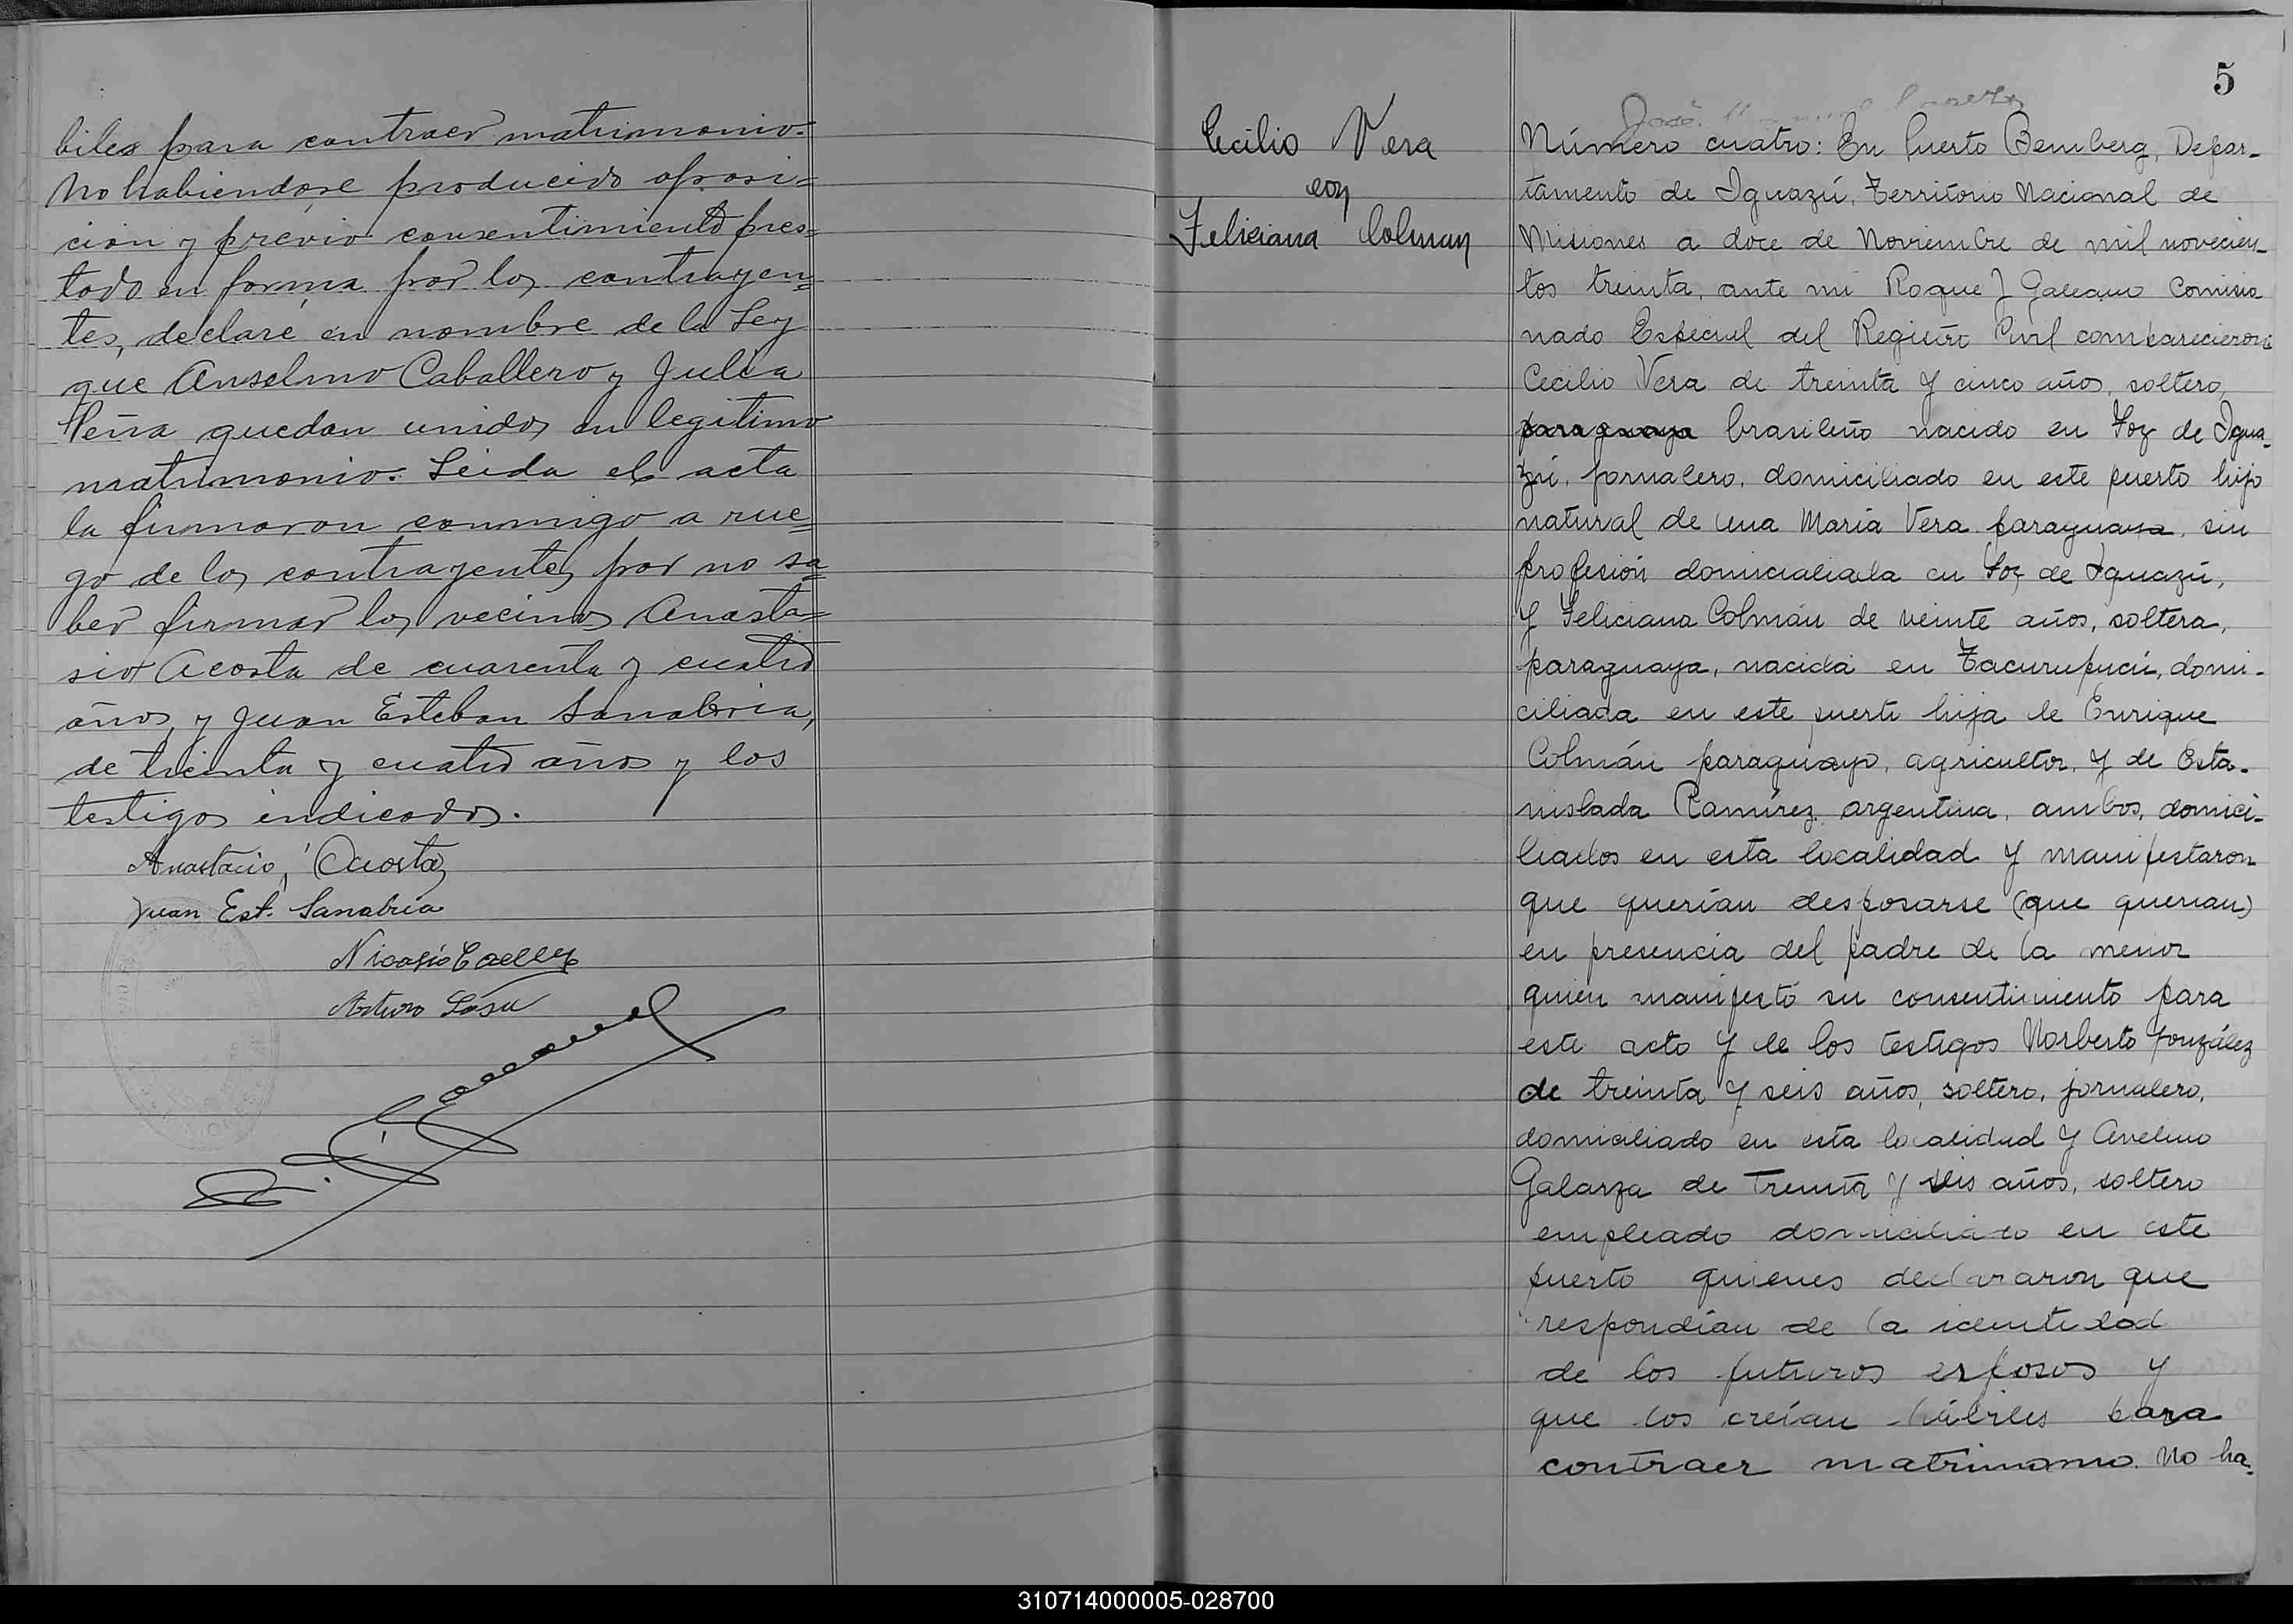 biles para contraer matrimonio.
No habiendose producido oposi=
cion y prévio consentimiento pres=
tado en forma por los contrayen=
tes, declaré en nombre de la Ley
que Anselmo Caballero y Julia
Peña quedan unidos en legítimo
matrimonio. Leida el acta
la firmaron conmigo a rue=
go de los contrayentes por no sa=
ber firmar los vecinos Anasta=
sio Acosta de cuarenta y cuatro
años, y Juan Esteban Sanabria,
de treinta y cuatro años y los
testigos indicados.
Anastacio Acosta
Juan Est. Sanabria
Nicasio
Arturo
Cecilio Vera
con
Feliciana Colman
5
José
Número cuatro: En Puerto Bemberg, Depar-
tamento de Iguazú, Territorio Nacional de
Misiones a doce de Noviembre de mil novecien-
tos treinta, ante mi Roque J Galeano Comisio
nado Especial del Registro Civil comparecieron:
Cecilio Vera de treinta y cinco años, soltero,
paraguaya brasileño nacido en Foz de Igua-
zú, jornalero, domiciliado en este puerto hijo
natural de una María Vera paraguaya, sin
profesión domicialiada en Foz de Iguazú,
y Feliciana Colmán de veinte años, soltera,
paraguaya, nacida en Tacurupucú, domi-
ciliada en este puerto hija de Enrique
Colmán paraguayo, agricultor, y de Esta-
nislada Ramírez argentina, ambos, domici-
liados en esta localidad y manifestaron
que querían desposarse (que querian)
en presencia del padre de la menor
quien manifestó su consentimiento para
este acto y de los testigos Norberto González
de treinta y seis años, soltero, jornalero,
domiciliado en esta localidad y Avelino
Galarza de treinta y seis años, soltero
empleado domiciliado en este
puerto quienes declararon que
respondían de la identidad
de los futuros esposos y
que los creían hábiles para
contraer matrimonio. No ha-
310714000005-028700